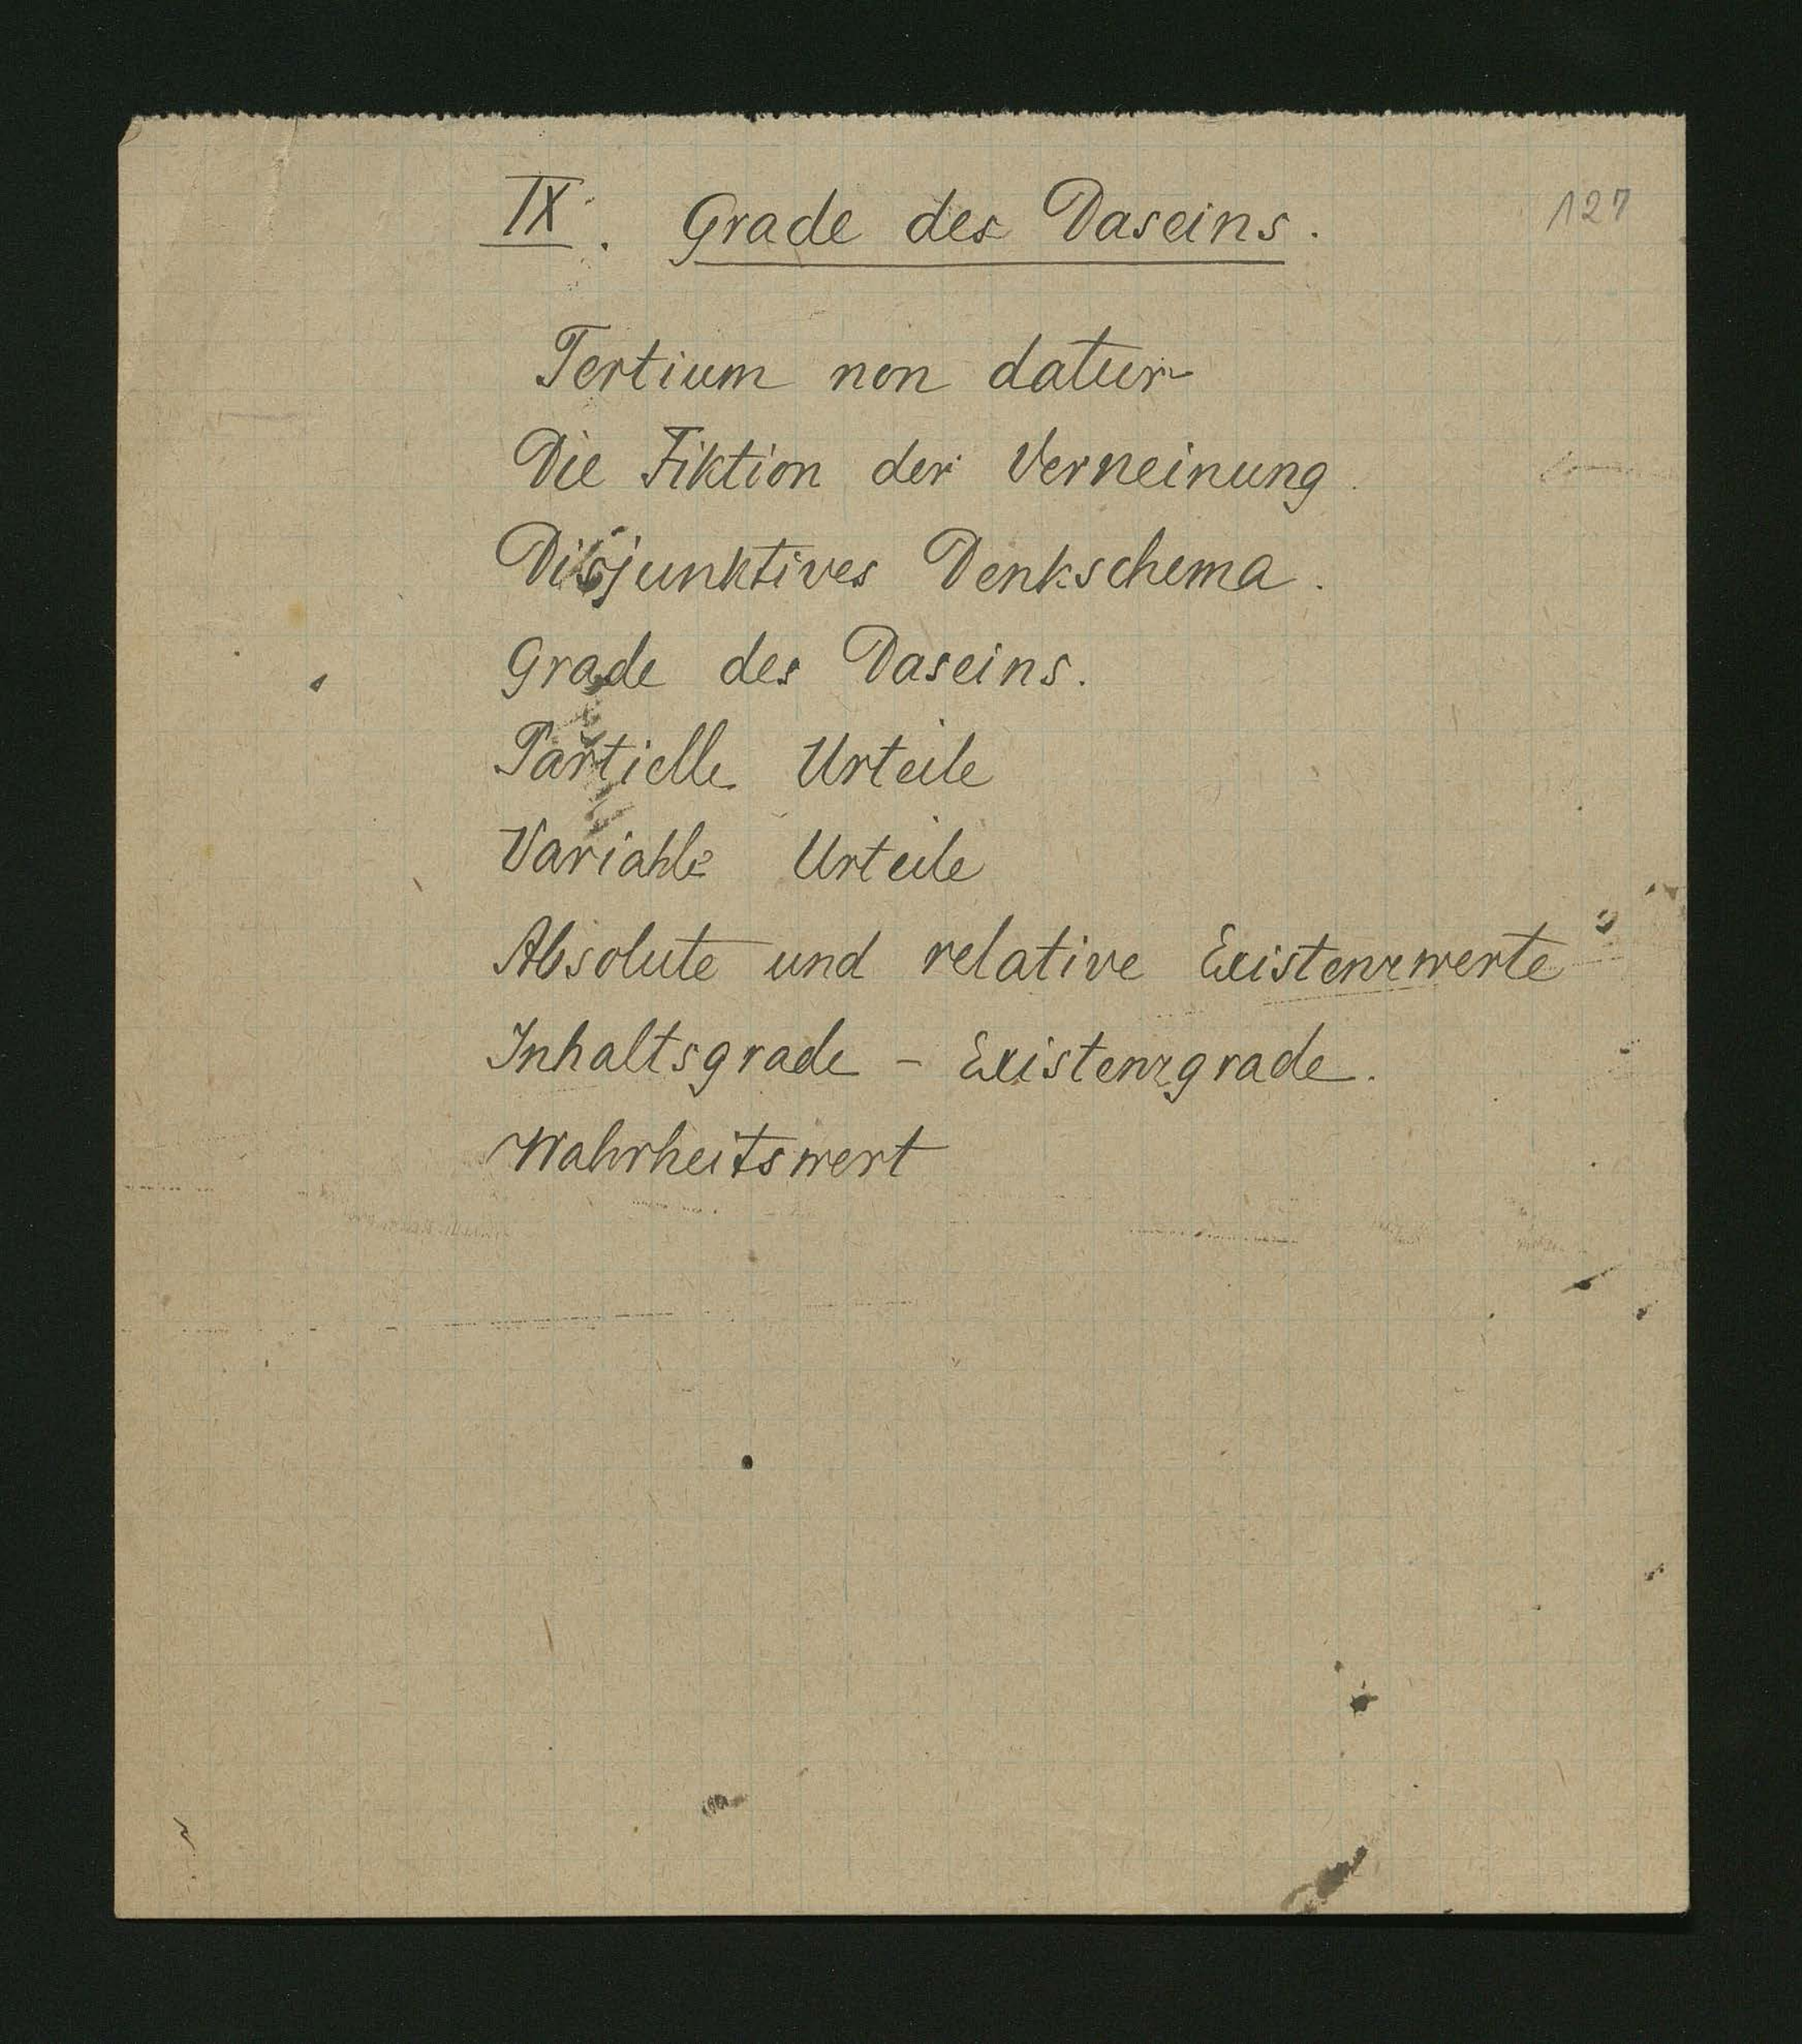 IX. Grade des Daseins. 127
Tertium non datur
Die Fiktion der Verneinung.
Disjunktives Denkschema.
Grade des Daseins.
Partielle Urteile
Variable Urteile
Absolute und relative Existenzwerte
Inhaltsgrade - Existenzgrade.
Wahrheitswert